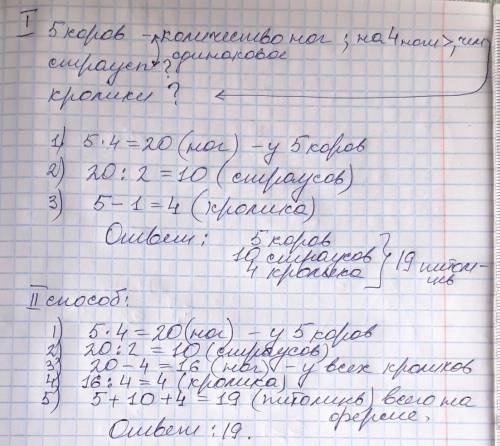 I
5 коров – количество ног ; на 4 ноги >, чем
страусы ? одинаковое
кролики ?
1) 5·4=20 (ног) – у 5 коров
2) 20:2=10 (страусов)
3) 5-1=4 (кролика)
Ответ: 5 коров
10 страусов
4 кролика } 19 питом-
цев
II способ:
1) 5·4=20 (ног) – у 5 коров
2) 20:2=10 (страусов)
3) 20-4=16 (ног) – у всех кроликов
4) 16:4=4 (кролика)
5) 5+10+4=19 (питомцев) всего на
ферме.
Ответ: 19.